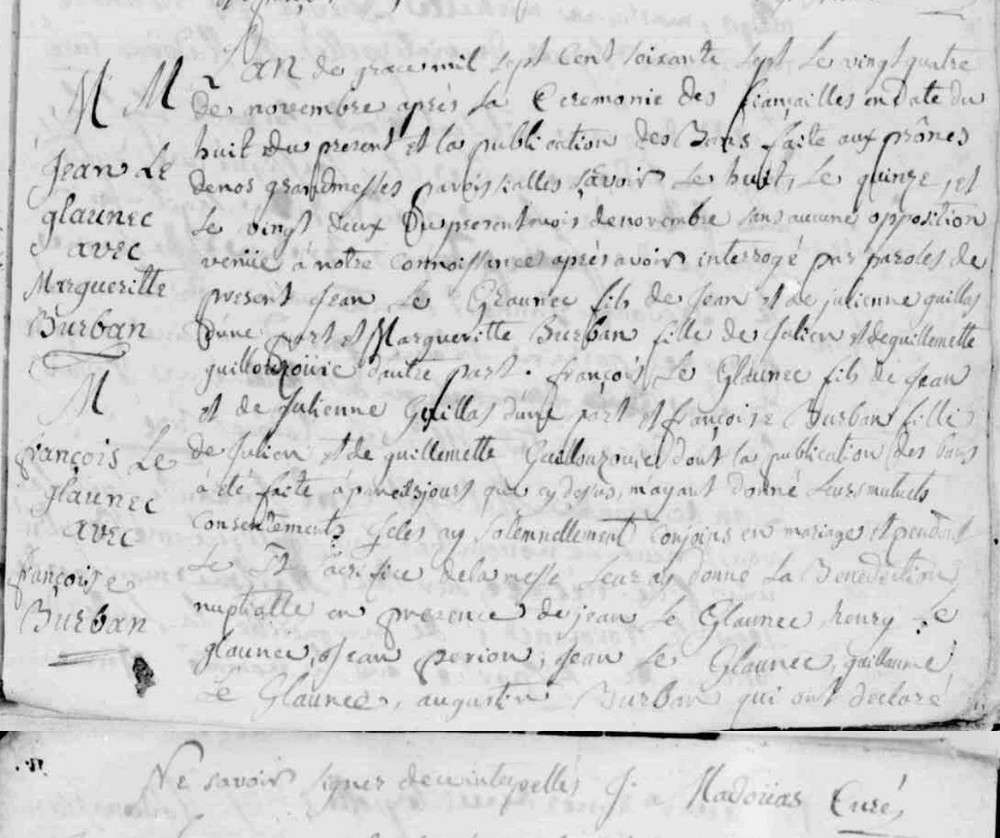 M M
Jean Le
glaunec
avec
Margueritte
Burban
M
françois Le
glaunec
avec
françoise
Burban
L'an de grace mil sept cent soixante sept le vingt quatre
de novembre après la Ceremonie des fiançailles en Date du
huit du present et la publication des Bans faite aux prônes
de nos grandmesses paroissialles sçavoir le huit, le quinze, et
le vingt deux Du present mois de novembre sans aucune opposition
venüe a notre connoissance après avoir interrogé par paroles de
present Jean Le Glaunec fils de Jean et de julienne guillas
d'une part et Margueritte Burban fille de Julien et de guillemette
d'autre part. françois Le Glaunec fils de Jean
et de Julienne Guillas d'une part et françoise Burban fille
de Julien et de guillemette dont la publication des bans
a été faite a pareils jours que cy dessus, m'ayant donné leurs mutuels
consentements je les ay solemnellement conjoins en mariage et pendant
le St sacrifice de la messe leur ai donné la Benediction
nuptialle en presence de jean Le Glaunec, henry Le
glaunec, Jean perion, Jean Le Glaunec, guillaume
Le Glaunec, augustin Burban qui ont declaré
Ne savoir signer de ce interpellés J. a Madorias Curé,